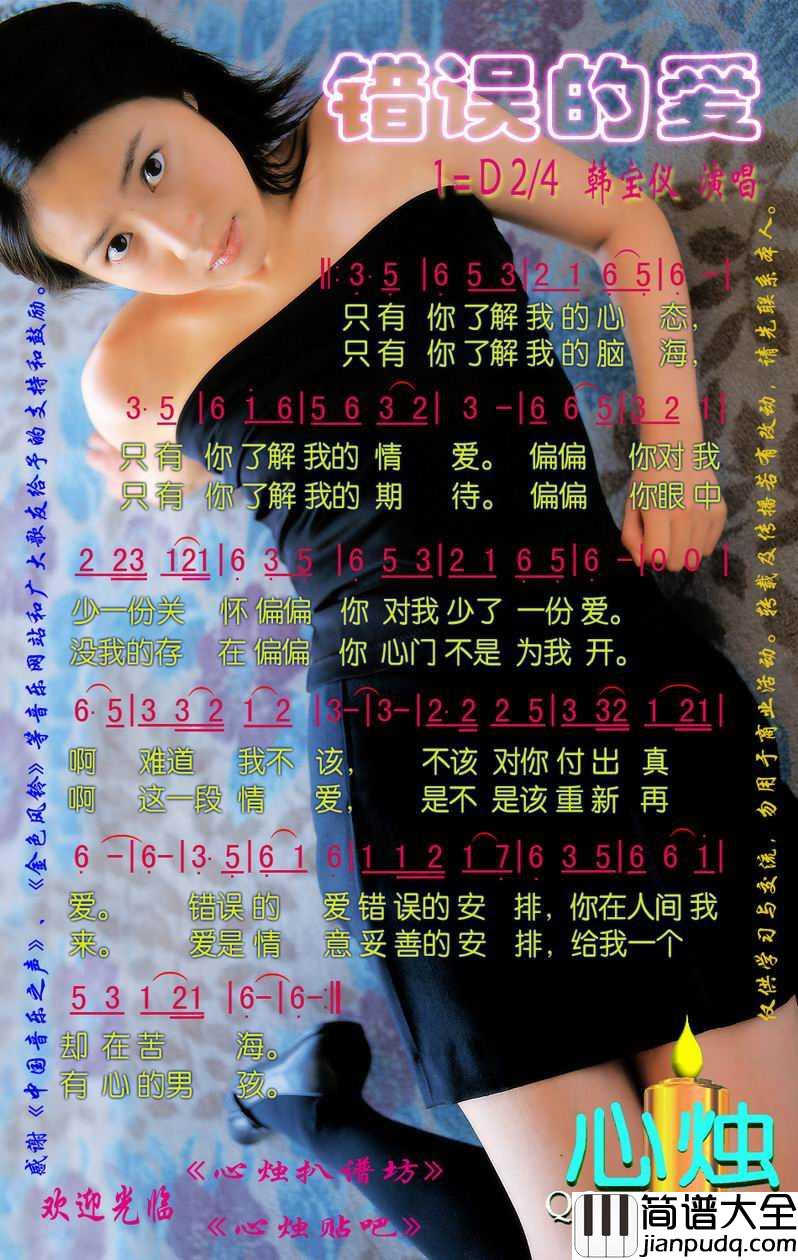 错误的爱
1=D 2/4 韩宝仪 演唱
‖: 3· 5 | 6 5 3 | 2 1 6 5 | 6 - |
只有 你了解我的心 态,
只有 你了解我的脑 海,
3· 5 | 6 1 6 | 5 6 3 2 | 3 - | 6 6 5 | 3 2 1 |
只有 你了解我的 情 爱。 偏偏 你对我
只有 你了解我的 期 待。 偏偏 你眼中
2 23 121 | 6 3 5 | 6 5 3 | 2 1 6 5 | 6 - | 0 0 |
少一份关 怀偏偏 你 对我少了 一份爱。
没我的存 在偏偏 你 心门不是 为我 开。
6· 5 | 3 3 2 1 2 | 3 - | 3 - | 2· 2 2 5 | 3 32 1 21 |
啊 难道 我不 该, 不该 对你付出 真
啊 这一段情 爱, 是不 是该重新 再
6 - | 6 - | 3· 5 | 6 1 6 | 1 1 2 1 7 | 6 3 5 | 6 6 1 |
爱。 错误的 爱错误的安 排,你在人间我
来。 爱是情 意妥善的安 排,给我一个
5 3 1 21 | 6 - | 6 - :‖
却在苦 海。
有心的男 孩。
感谢《中国音乐之声》、《金色风铃》等音乐网站和广大歌友给予的支持和鼓励。
仅供学习与交流，勿用于商业活动。转载及传播若有改动，请先联系本人。
心烛
欢迎光临
《心烛扒谱坊》
《心烛贴吧》
Q
简谱大全
jianpudq.com